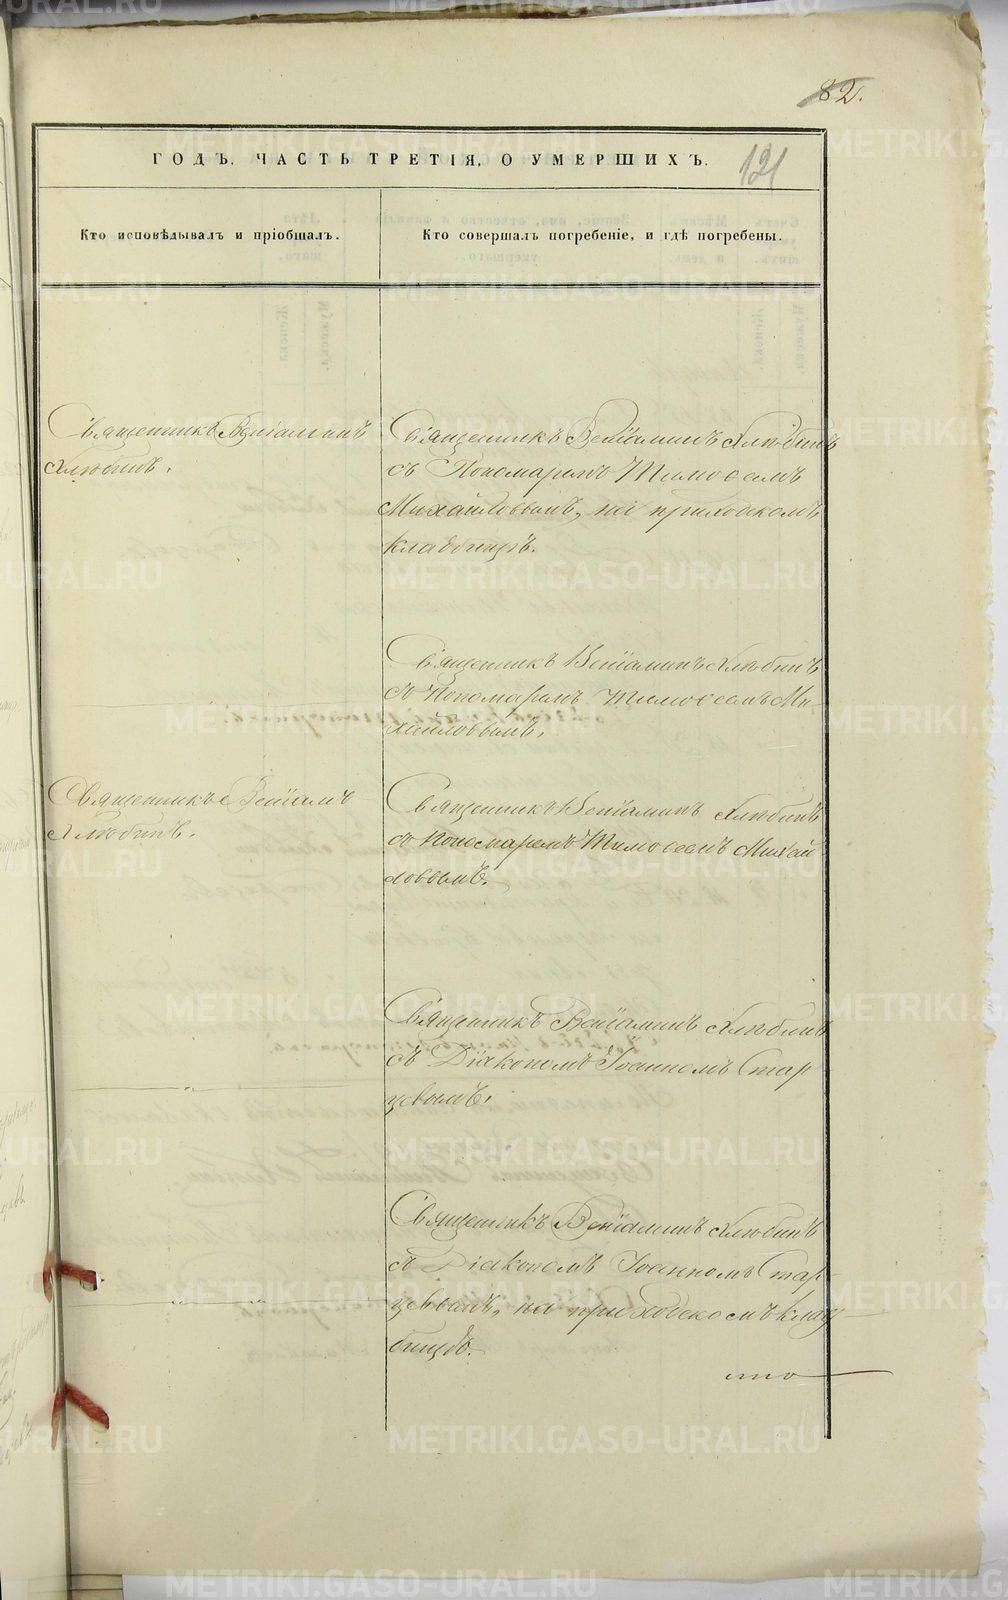 82.
ГОДЪ, ЧАСТЬ ТРЕТІЯ, О УМЕРШИХЪ.
121
Кто исповѣдывалъ и пріобщалъ.
Кто совершалъ погребеніе, и гдѣ погребены.
Священникъ Веніаминъ
Хлѣбинъ.
Священникъ Веніаминъ Хлѣбинъ
съ Пономаремъ Тимоѳеемъ
Михайловымъ, на приходскомъ
кладбищѣ.
Священникъ Веніаминъ Хлѣбинъ
съ Пономаремъ Тимоѳеемъ Ми-
хайловымъ.
Священникъ Веніамъ
Хлѣбинъ.
Священникъ Веніаминъ Хлѣбинъ
съ Пономаремъ Тимоѳеемъ Михай
ловымъ.
Священникъ Веніаминъ Хлѣбинъ
съ Діакономъ Іоанномъ Стар
цевымъ.
Священникъ Веніаминъ Хлѣбинъ
съ Діакономъ Іоанномъ Стар-
цевымъ, на приходскомъ клад-
бищѣ.
METRIKI.GASO-URAL.RU